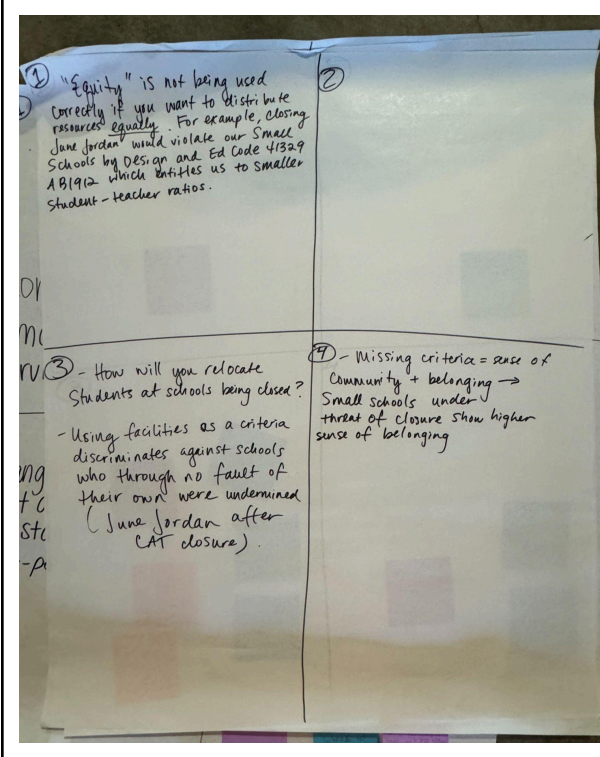 ① "Equity" is not being used
correctly if you want to distribute
resources equally. For example, closing
June Jordan would violate our Small
Schools by Design and Ed Code 41329
AB1912 which entitles us to smaller
Student-teacher ratios.
②
③ - How will you relocate
Students at schools being closed?
- Using facilities as a criteria
discriminates against schools
who through no fault of
their own were undermined
(June Jordan after
CAT closure).
④ - Missing criteria = sense of
Community + belonging →
Small schools under
threat of closure show higher
sense of belonging